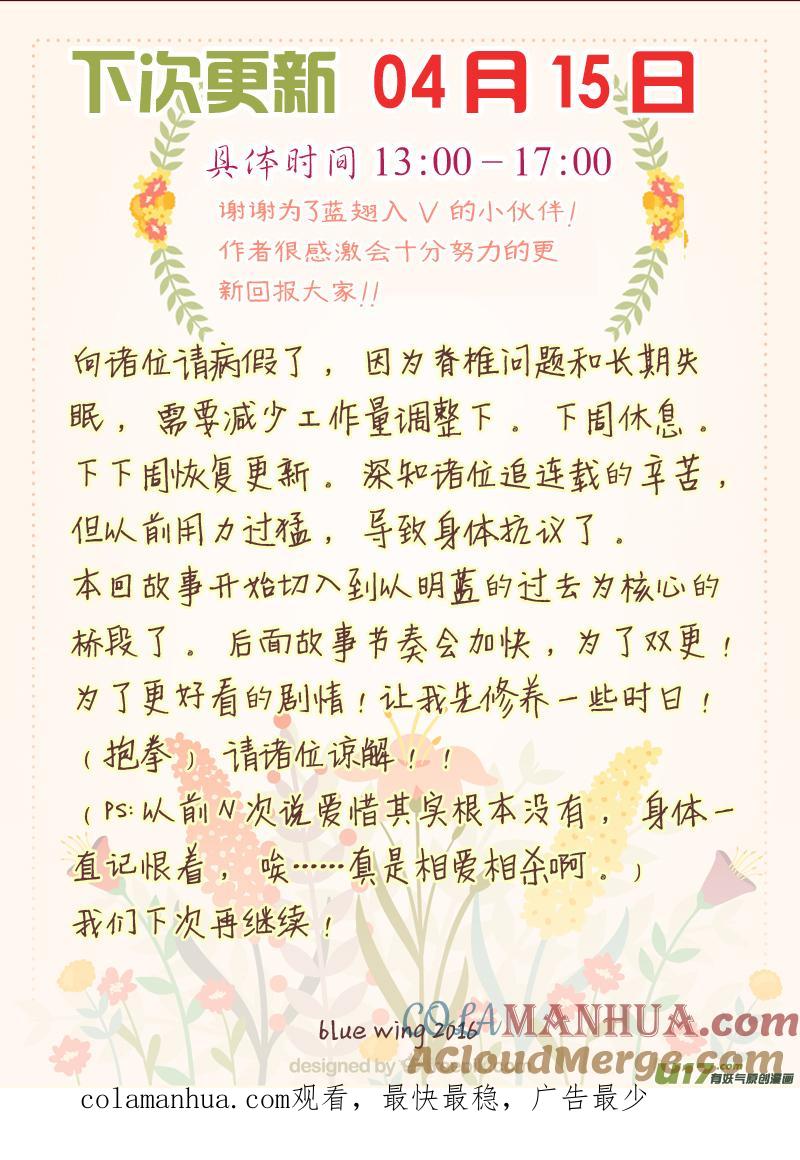 下次更新 04月15日
具体时间 13:00－17:00
谢谢为了蓝翅入 V 的小伙伴!
作者很感激会十分努力的更
新回报大家!!
向诸位请病假了，因为脊椎问题和长期失
眠，需要减少工作量调整下。下周休息。
下下周恢复更新。深知诸位追连载的辛苦，
但以前用力过猛，导致身体抗议了。
本回故事开始切入到以明蓝的过去为核心的
桥段了。后面故事节奏会加快，为了双更!
为了更好看的剧情!让我先修养一些时日!
（抱拳）请诸位谅解!!
（PS:以前N次说爱惜其实根本没有，身体一
直记恨着，唉……真是相爱相杀啊。）
我们下次再继续!
blue wing 2016
COLAMANHUA.com
designed by
AcloudMerge.com
U17.com
有妖气原创漫画
colamanhua.com观看，最快最稳，广告最少